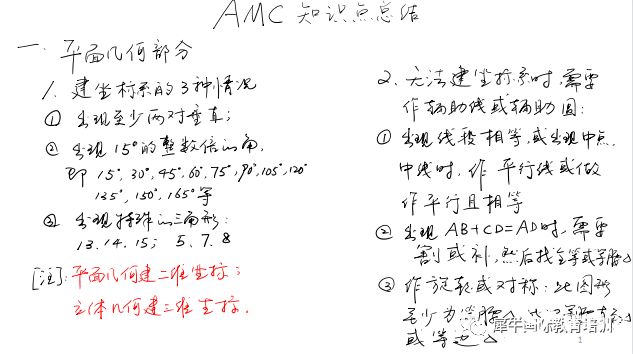 AMC 知识点总结
一. 平面几何部分
1. 建坐标系的3种情况
① 出现至少两对垂直;
② 出现15°的整数倍的角,
即 15°, 30°, 45°, 60°, 75°, 90°, 105°, 120°
135°, 150°, 165° 等
③ 出现特殊的三角形:
13. 14. 15; 5. 7. 8
[注]: 平面几何建二维坐标;
立体几何建三维坐标.
2. 无法建坐标系时, 需要
作辅助线或辅助圆:
① 出现线段相等, 或出现中点,
中线时, 作平行线或做
作平行且相等
② 出现 AB+CD=AD时, 需要
割或补, 然后找全等或等腰△
③ 作旋转或对称: 此图形
至少为等腰△
或等边△
犀牛国际教育培训
1